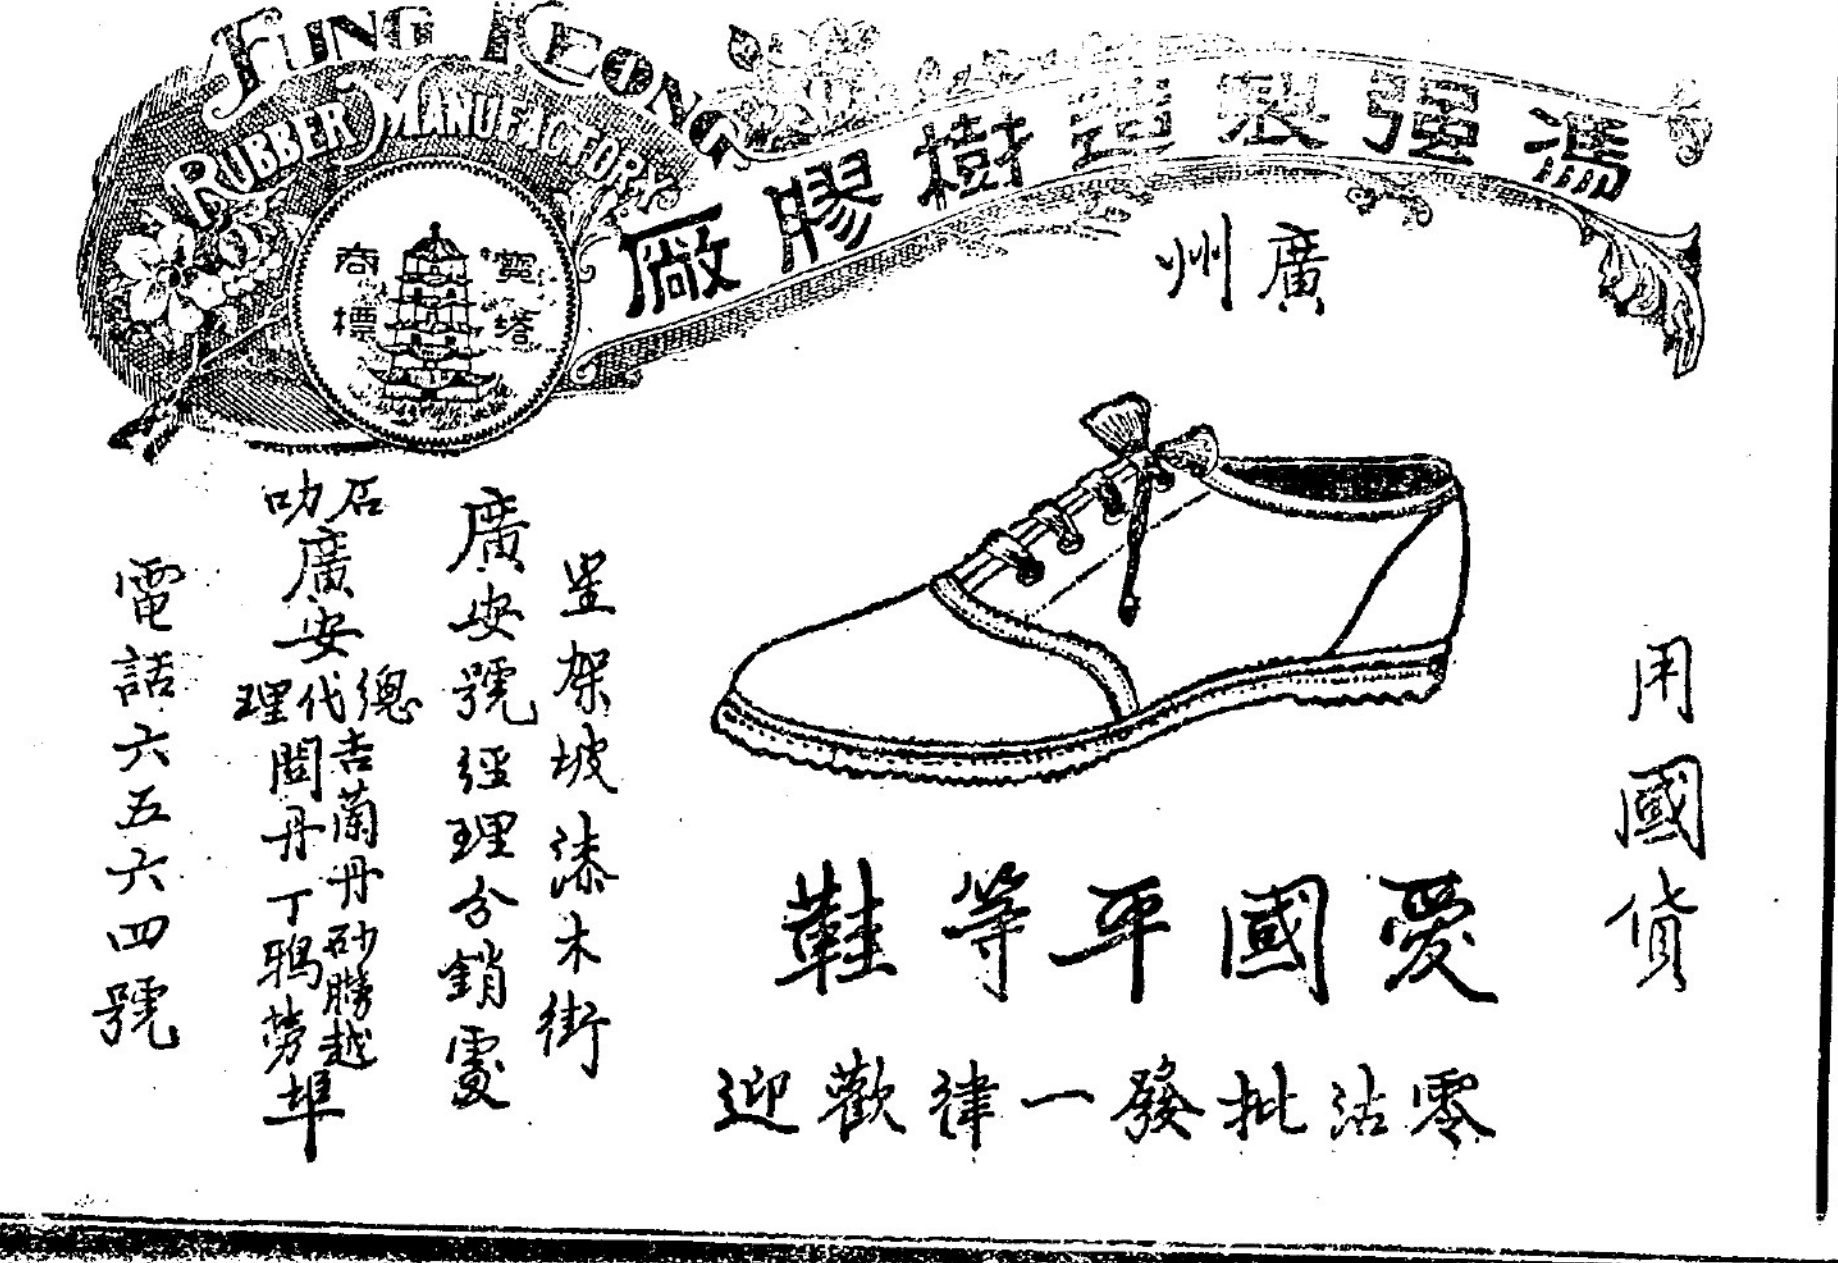 FUNG KEONG
RUBBER MANUFACTORY
馮强製造樹膠廠
廣州
寶塔
商標
用國貨
愛國平等鞋
零沽批發一律歡迎
星架坡漆木街
廣安號經理分銷處
石叻廣安總代理
吉蘭丹砂勝越
関丹丁鴉蒡埠
電話六五六四號